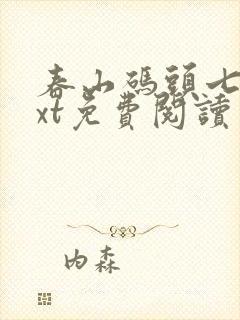 春山碼頭七
xt免費閱讀
內森